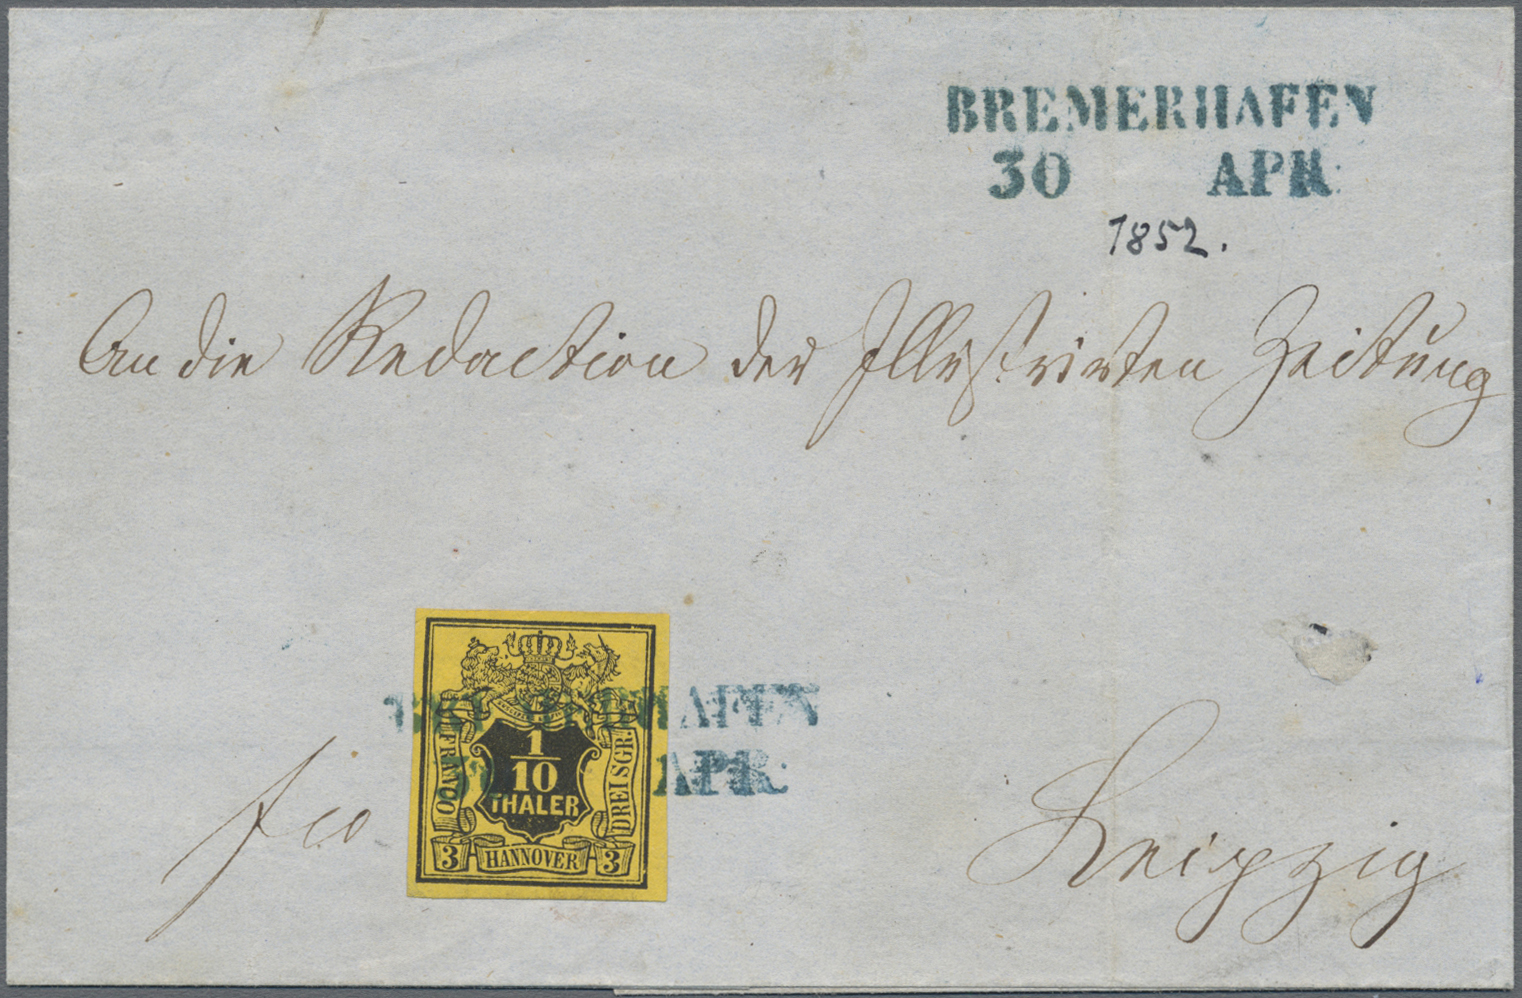 BREMERHAFEN
30 APR
1852.
An die Redaction der Illustrirten Zeitung
BREMERHAFEN
30 APR
FRANCO
1
10
THALER
DREI SGR.
3 HANNOVER 3
fco
Leipzig